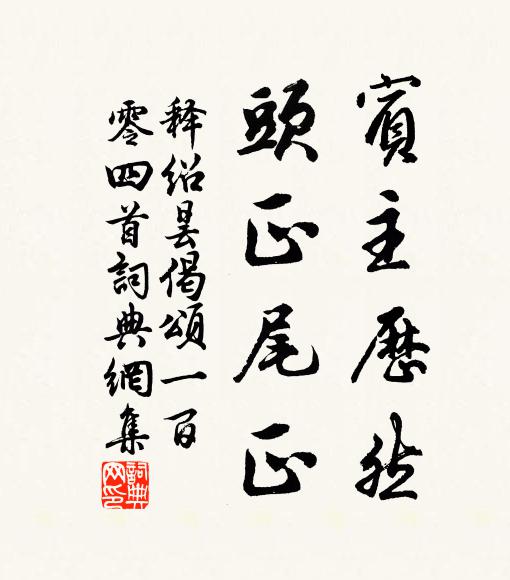 賓主歷然
頭正尾正
释紹曇偈頌一百
零四首詞典網集
詞典網印